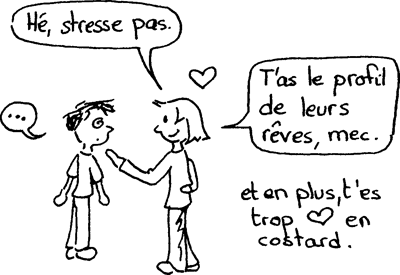 Hé, stresse pas.
...
T'as le profil
de leurs
rêves, mec.
et en plus, t'es
trop ♡ en
costard.